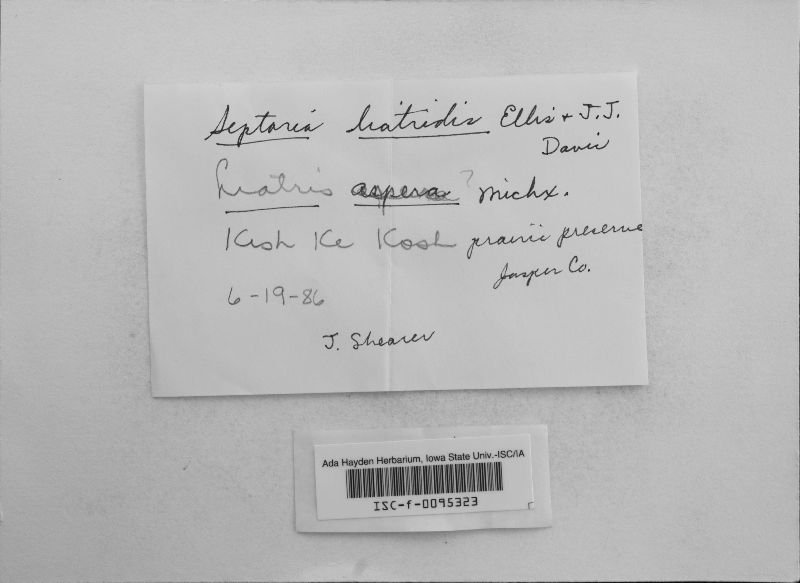 Septoria liatridis Ellis + J.J.
Davis
Liatris aspera ? Michx.
Kish Ke Kosh prairie preserve
Jasper Co.
6-19-86
J. Shearer
Ada Hayden Herbarium, Iowa State Univ.-ISC/IA
ISC-f-0095323